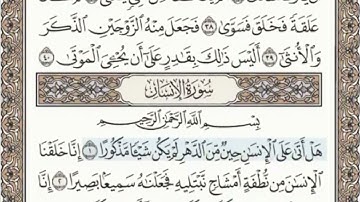 عَلَقَةً فَخَلَقَ فَسَوَّىٰ ٣٨ فَجَعَلَ مِنْهُ ٱلزَّوْجَيْنِ ٱلذَّكَرَ
وَٱلْأُنثَىٰٓ ٣٩ أَلَيْسَ ذَٰلِكَ بِقَٰدِرٍ عَلَىٰٓ أَن يُحْـِۧىَ ٱلْمَوْتَىٰ ٤٠
سُورَةُ الإِنسَانِ
بِسْمِ ٱللَّهِ ٱلرَّحْمَٰنِ ٱلرَّحِيمِ
هَلْ أَتَىٰ عَلَى ٱلْإِنسَٰنِ حِينٌ مِّنَ ٱلدَّهْرِ لَمْ يَكُن شَيْـًٔا مَّذْكُورًا ١ إِنَّا خَلَقْنَا
ٱلْإِنسَٰنَ مِن نُّطْفَةٍ أَمْشَاجٍ نَّبْتَلِيهِ فَجَعَلْنَٰهُ سَمِيعًۢا بَصِيرًا ٢ إِنَّا